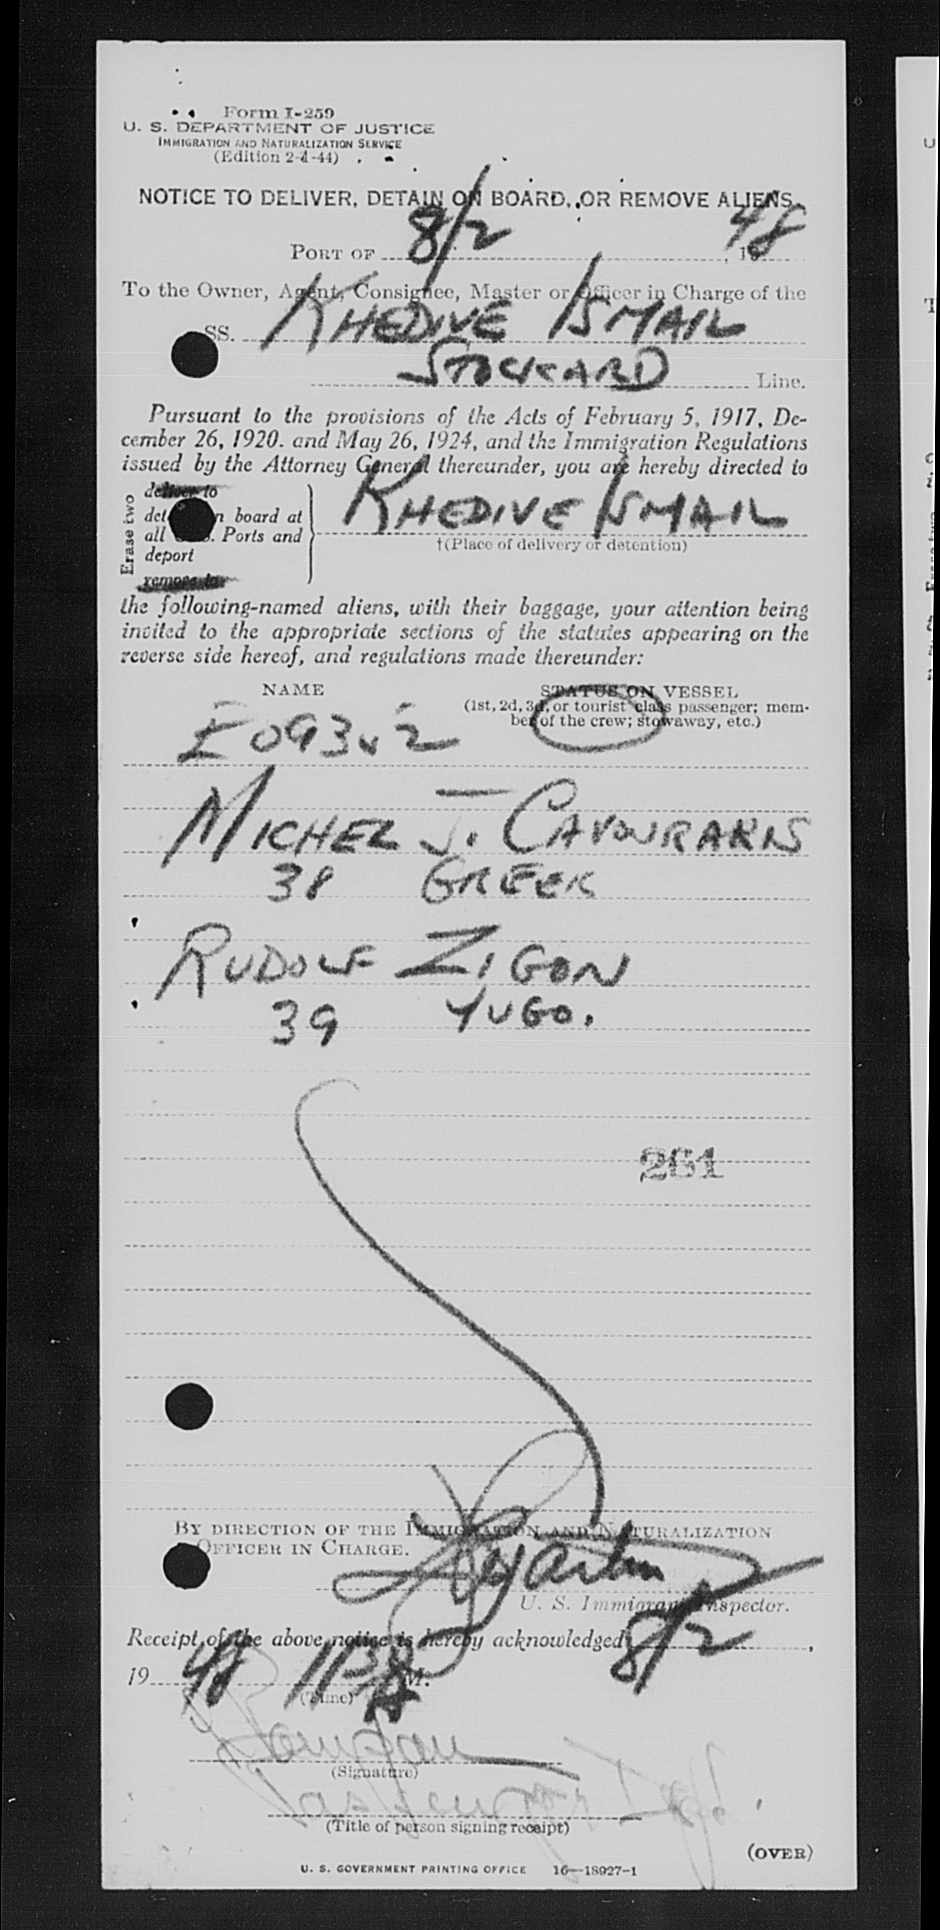 Form I-259
U. S. DEPARTMENT OF JUSTICE
IMMIGRATION AND NATURALIZATION SERVICE
(Edition 2-1-44)
NOTICE TO DELIVER, DETAIN ON BOARD, OR REMOVE ALIENS
PORT OF 8/2, 1948
To the Owner, Agent, Consignee, Master or Officer in Charge of the
SS. KHEDIVE ISMAIL
STOCKARD Line.
Pursuant to the provisions of the Acts of February 5, 1917, De-
cember 26, 1920. and May 26, 1924, and the Immigration Regulations
issued by the Attorney General thereunder, you are hereby directed to
Erase two
deliver to
det n board at
all . Ports and
deport
remove to
KHEDIVE ISMAIL
†(Place of delivery or detention)
the following-named aliens, with their baggage, your attention being
invited to the appropriate sections of the statutes appearing on the
reverse side hereof, and regulations made thereunder:
NAME
STATUS ON VESSEL
(1st, 2d, 3d, or tourist class passenger; mem-
ber of the crew; stowaway, etc.)
MICHEL J. CAVOURAKIS
38 GREEK
RUDOLF ZIGON
39 YUGO.
261
BY DIRECTION OF THE IMMIGRATION AND NATURALIZATION
OFFICER IN CHARGE.
U. S. Immigrant Inspector.
Receipt of the above notice is hereby acknowledged 8/2,
1948 1138 A M.
(Time)
(Signature)
Passenger
(Title of person signing receipt)
(OVER)
U. S. GOVERNMENT PRINTING OFFICE 16—18927-1